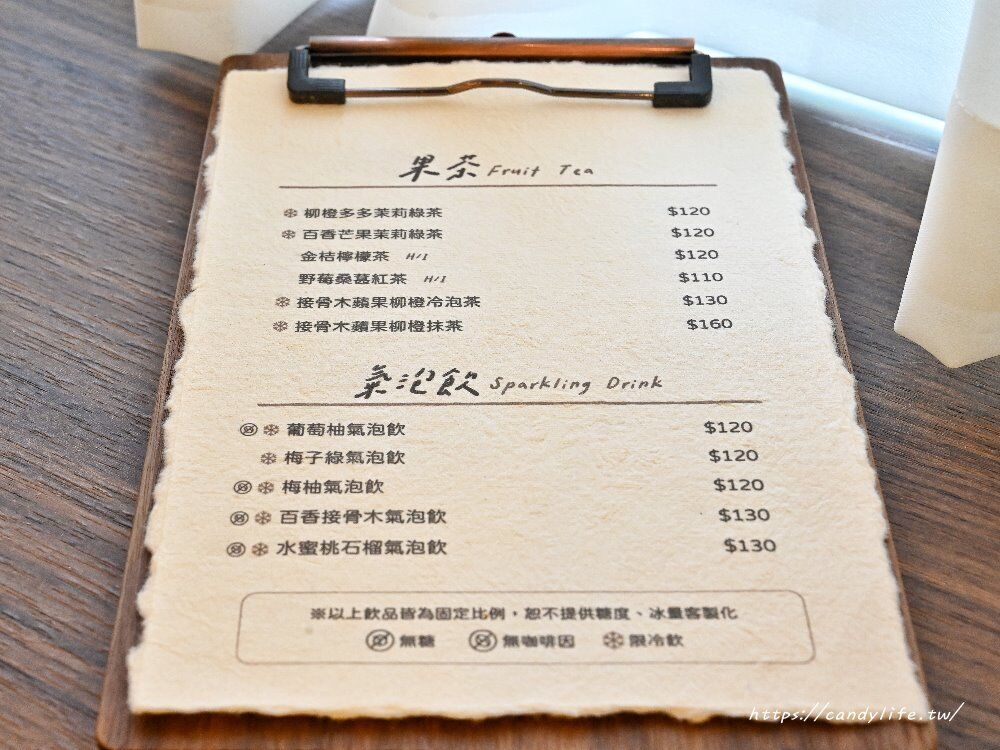 果茶 Fruit Tea
柳橙多多茉莉綠茶 $120
百香芒果茉莉綠茶 $120
金桔檸檬茶 H/I $120
野莓桑葚紅茶 H/I $110
接骨木蘋果柳橙冷泡茶 $130
接骨木蘋果柳橙抹茶 $160
氣泡飲 Sparkling Drink
葡萄柚氣泡飲 $120
梅子綠氣泡飲 $120
梅柚氣泡飲 $120
百香接骨木氣泡飲 $130
水蜜桃石榴氣泡飲 $130
※以上飲品皆為固定比例，恕不提供糖度、冰量客製化
無糖 無咖啡因 限冷飲
https://candylife.tw/